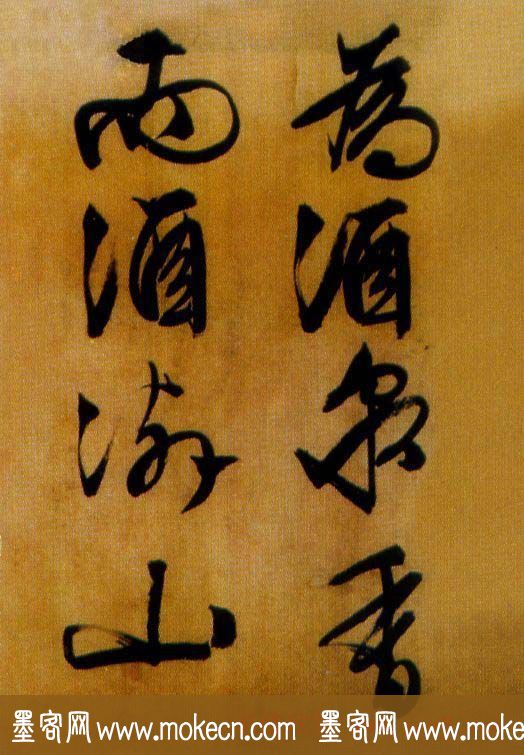 為酒泉香
而酒洌山
墨客网 www.mokecn.com 墨客网 www.moke